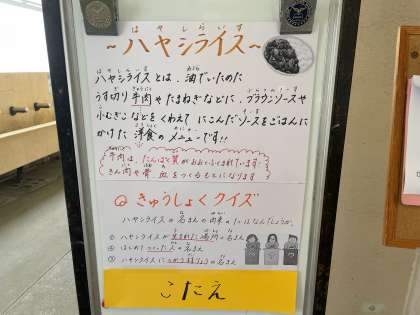 はやしらいす
～ハヤシライス～
ハヤシライスとは、油でいためた
うす切り牛肉やたまねぎなどに、ブラウンソースや
小むぎこなどをくわえて にこんだソースをごはんに
かけた 洋食のメニューです!!
牛肉は、たんぱく質がおおくふくまれています。
きん肉や骨、血をつくるもとになります
Q きゅうしょくクイズ
ハヤシライスの名まえの由来の
① ハヤシライスが生まれた場所の名まえ
② はじめてつくった人の名まえ
③ ハヤシライスにつかう材りょうの名まえ
こたえ